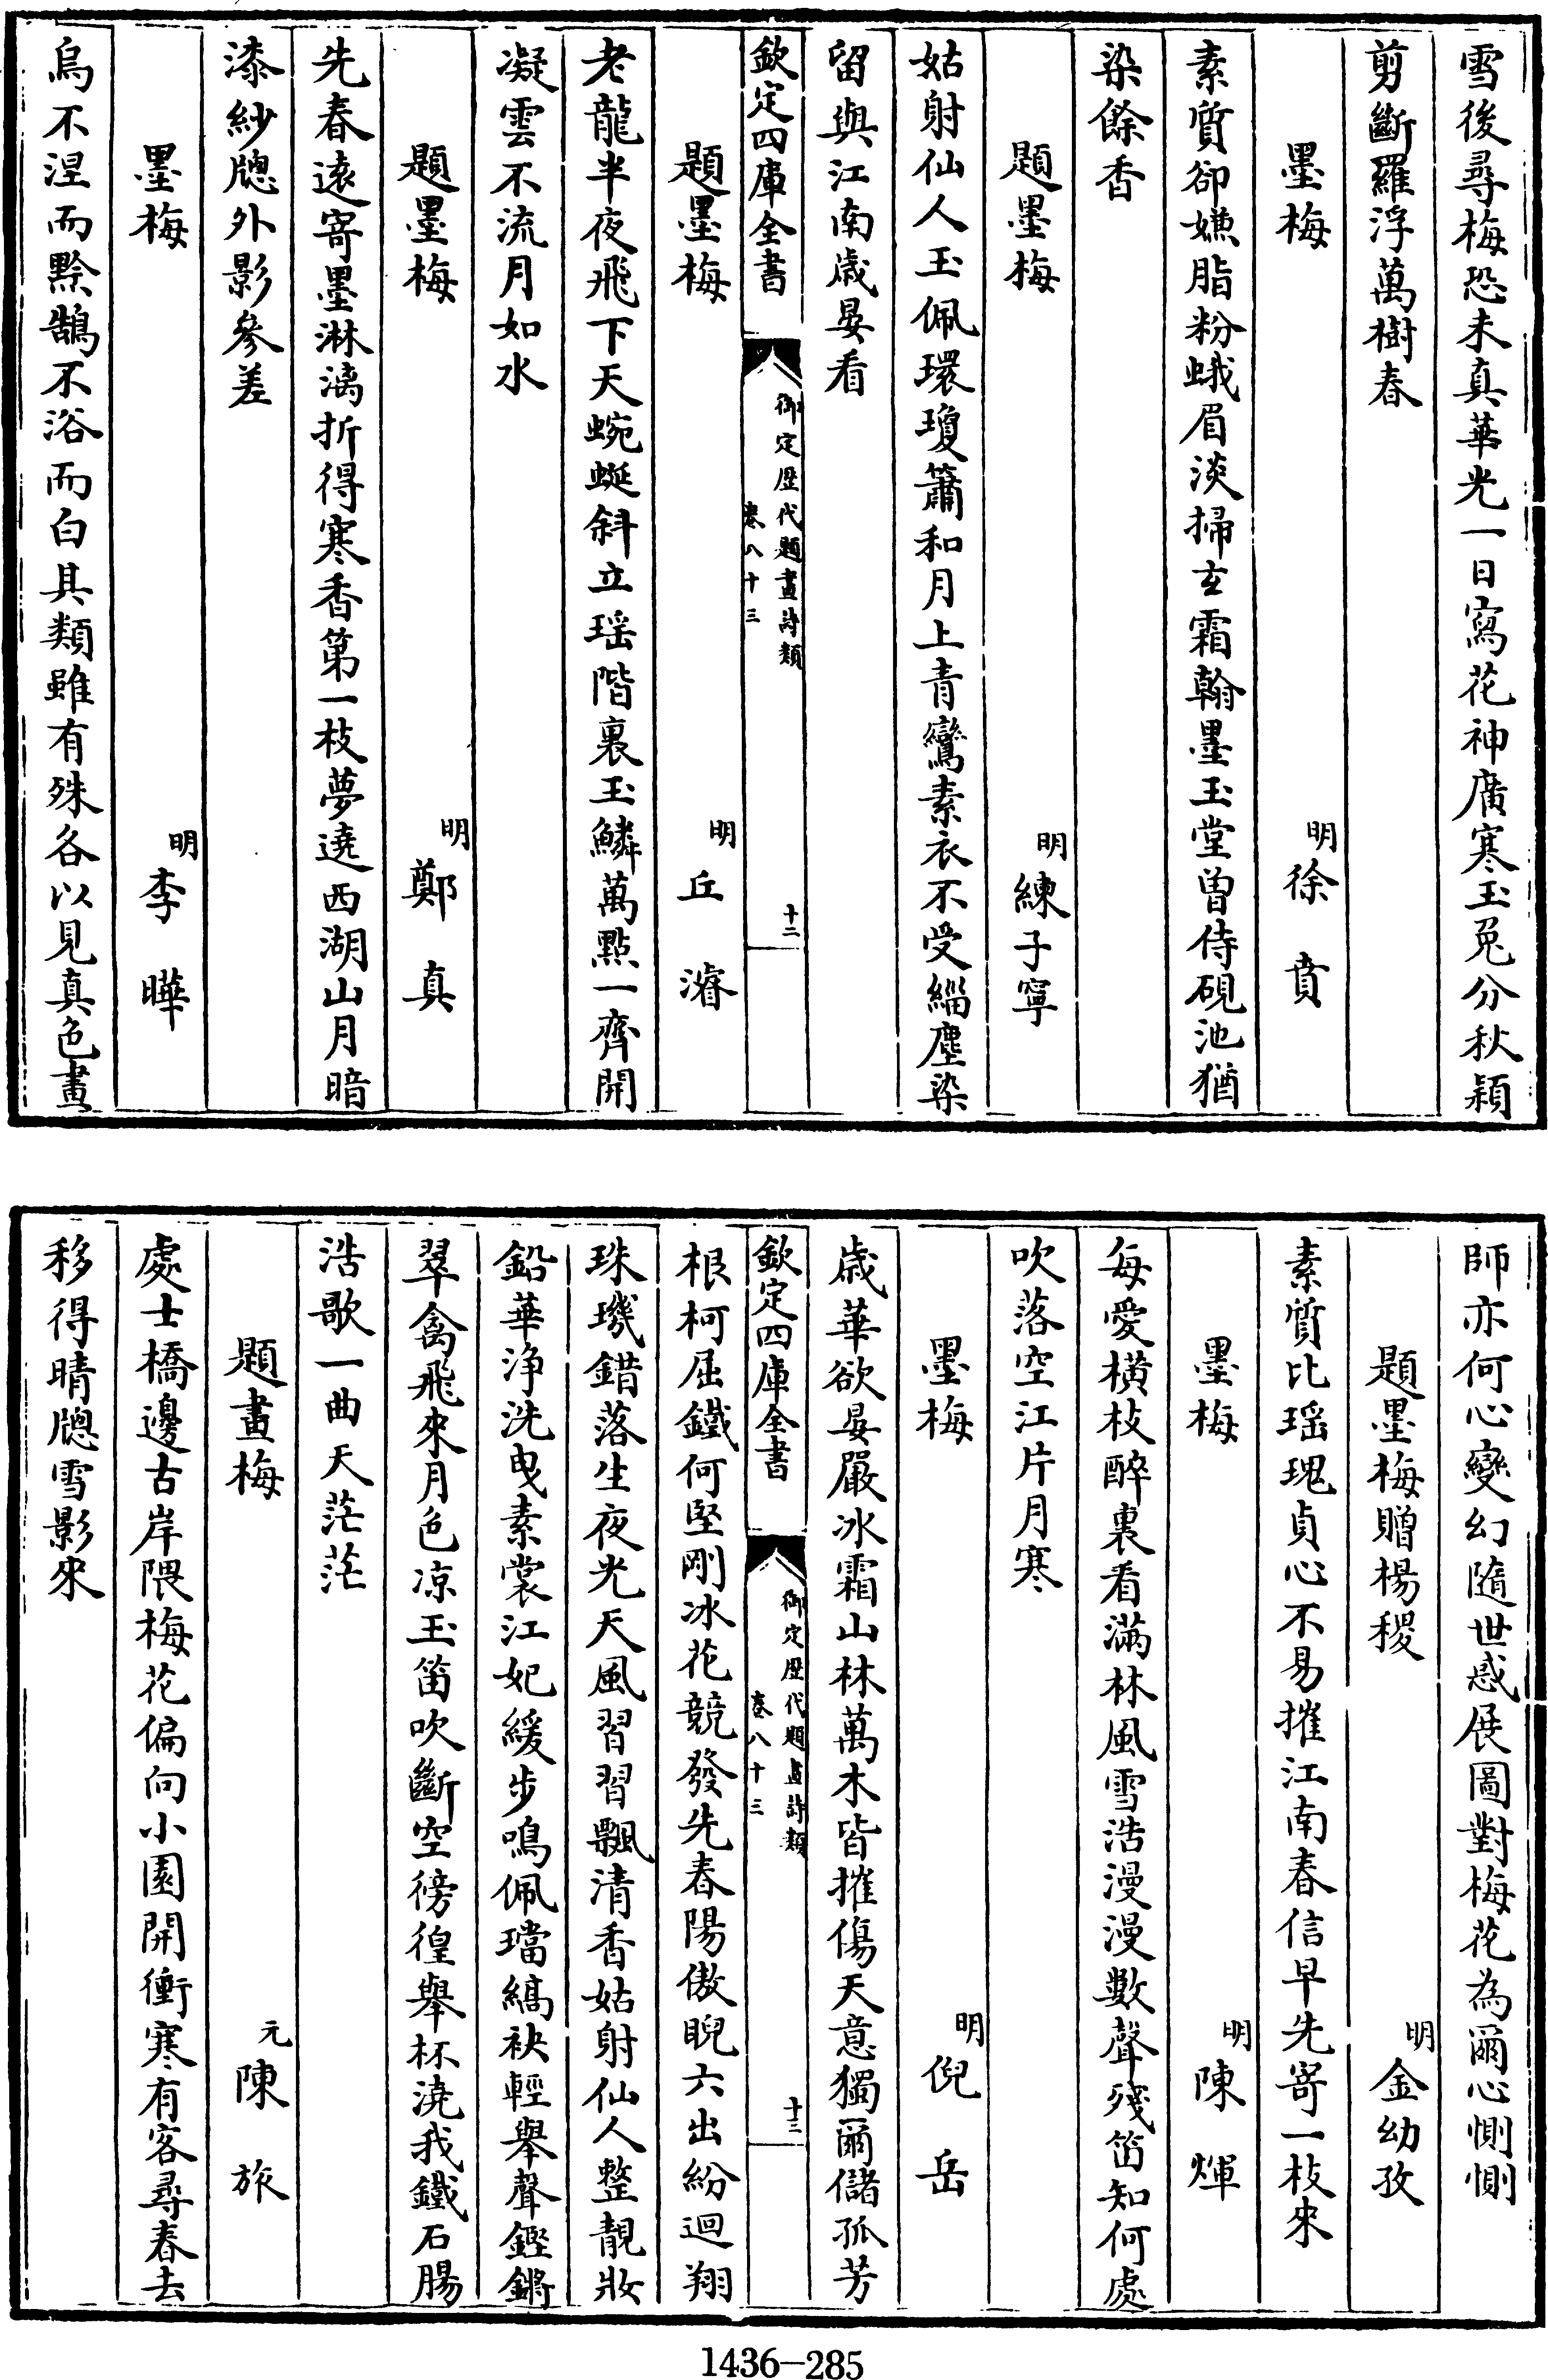 雪後尋梅恐未真華光一日寫花神廣寒玉兔分秋穎
剪斷羅浮萬樹春
墨梅 明徐賁
素質卻嫌脂粉蛾眉淡掃玄霜翰墨玉堂曽侍硯池猶
染餘香
題墨梅 明練子寧
姑射仙人玉佩環瓊簫和月上青鸞素衣不受緇塵染
留與江南歲晏看
欽定四庫全書 御定歷代題畫詩類 卷八十三 十二
題墨梅 明丘濬
老龍半夜飛下天蜿蜒斜立瑶階裏玉鱗萬點一齊開
凝雲不流月如水
題墨梅 明鄭真
先春遠寄墨淋漓折得寒香第一枝夢遶西湖山月暗
漆紗牕外影參差
墨梅 明李曄
烏不涅而黔鵠不浴而白具類雖有殊各以見真色畫
師亦何心變幻隨世惑展圖對梅花為爾心惻惻
題墨梅贈楊稷 明金幼孜
素質比瑶瑰貞心不易摧江南春信早先寄一枝來
墨梅 明陳煇
每愛橫枝醉裏看滿林風雪浩漫漫數聲殘笛知何處
吹落空江片月寒
墨梅 明倪岳
歲華欲晏嚴冰霜山林萬木皆摧傷天意獨爾儲孤芳
欽定四庫全書 御定歷代題畫詩類 卷八十三 十三
根柯屈鐵何堅剛冰花競發先春陽傲睨六出紛迴翔
珠璣錯落生夜光天風習習飄清香姑射仙人整靚妝
鉛華淨洗曳素裳江妃緩步鳴佩璫縞袂輕舉聲鏗鏘
翠禽飛來月色凉玉笛吹斷空徬徨舉杯澆我鐵石腸
浩歌一曲天茫茫
題畫梅 元陳旅
處士橋邊古岸隈梅花偏向小園開衝寒有客尋春去
移得晴牕雪影來
1436-285